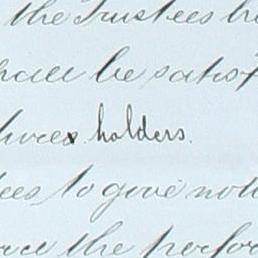 the Trustees
shall be satisf
holders.
ees to give noti
the perfor